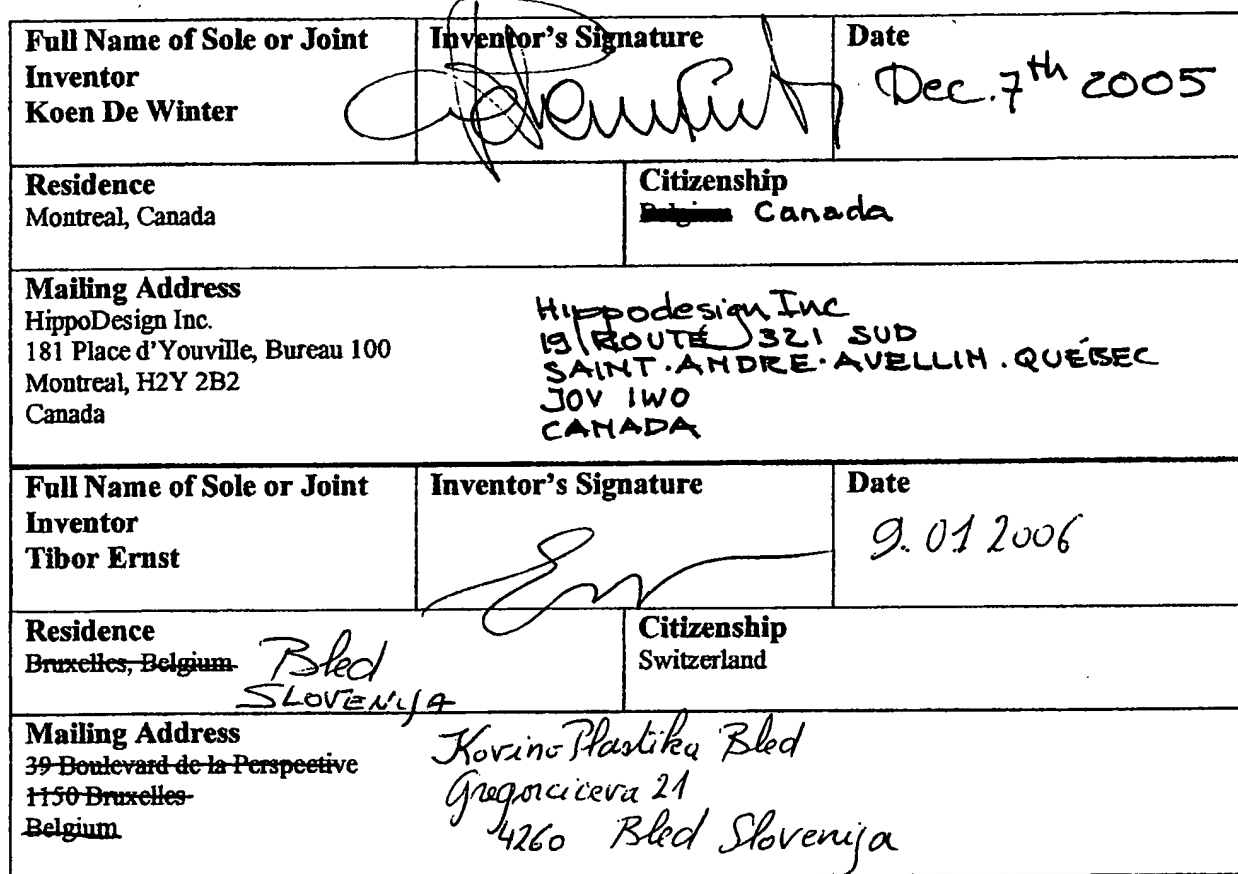 Full Name of Sole or Joint
Inventor
Koen De Winter
Inventor's Signature
Date
Dec. 7th 2005
Residence
Montreal, Canada
Citizenship
Belgium Canada
Mailing Address
HippoDesign Inc.
181 Place d'Youville, Bureau 100
Montreal, H2Y 2B2
Canada
Hippodesign Inc
19 ROUTE 321 SUD
SAINT·ANDRE·AVELLIN. QUÉBEC
JOV 1WO
CANADA
Full Name of Sole or Joint
Inventor
Tibor Ernst
Inventor's Signature
Date
9. 01 2006
Residence
Bruxelles, Belgium
Bled
SLOVENIJA
Citizenship
Switzerland
Mailing Address
39 Boulevard de la Perspective
1150 Bruxelles
Belgium
Kovino Plastika Bled
Gregorciceva 21
4260 Bled Slovenija